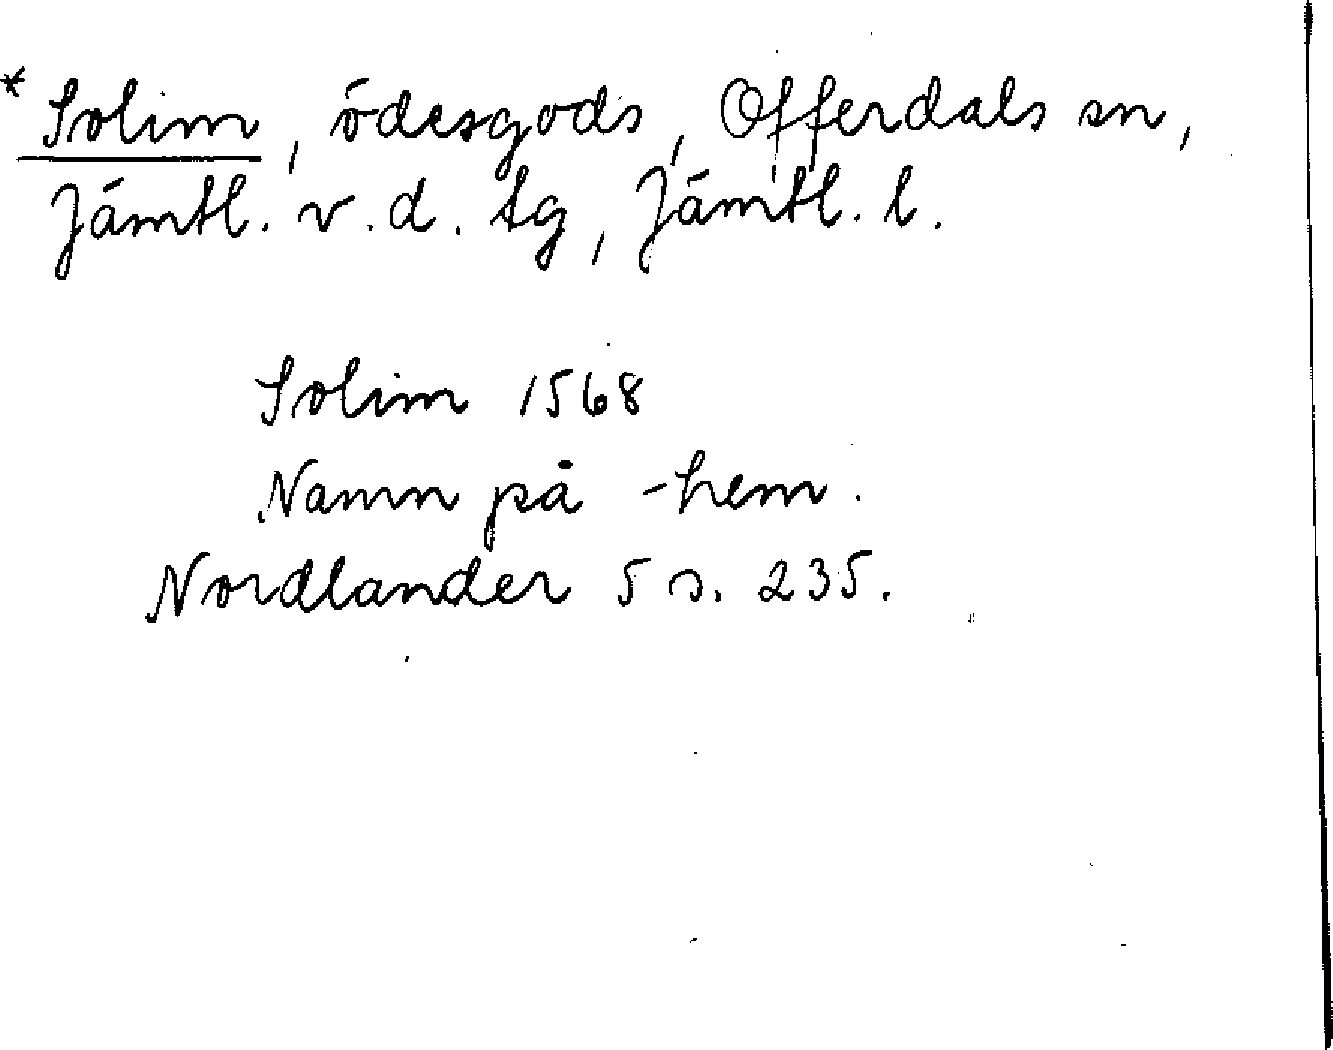 * Solim, ödesgods, Offerdals sn,
Jämtl. v. d. tg, Jämtl. l.
Solim 1568
Namn på -hem.
Nordlander 5 s. 235.